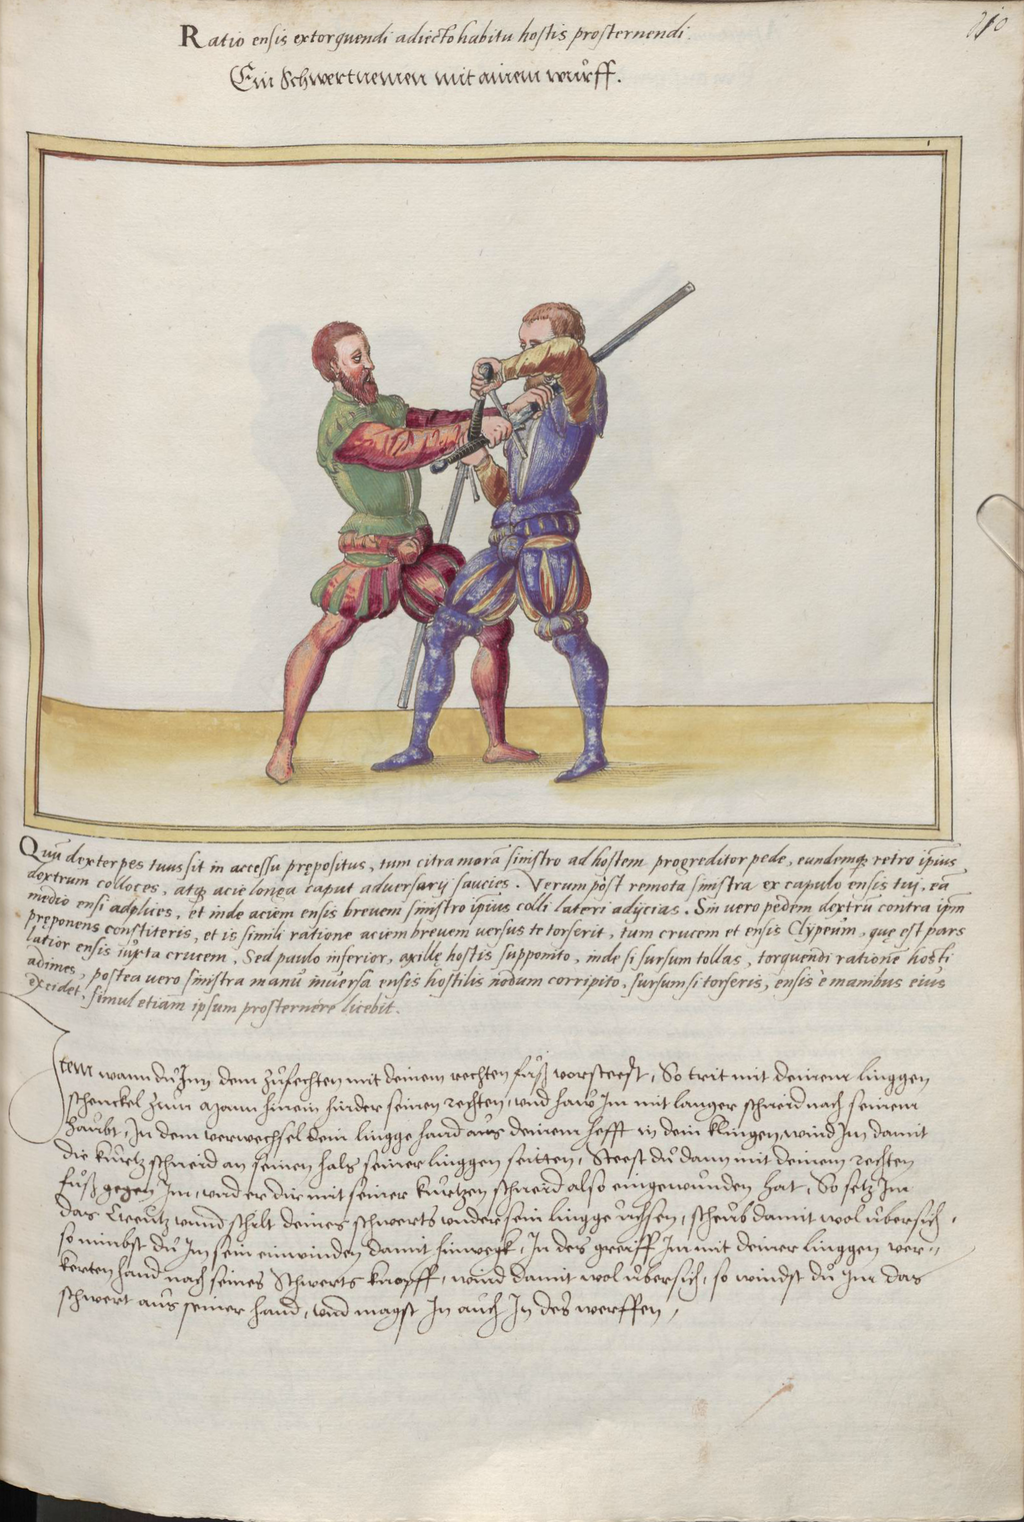 210
Ratio ensis extorquendi adiecto habitu hostis prosternendi.
Ein Schwertnemen mit ainem wurff.
Quũ dexter pes tuus sit in accessu prępositus, tum citra morã sinistro ad hostem progreditor pede, eundemq́; retro ipsius
dextrum colloces, atq́; acie longa caput adversarij saucies. Verum post remota sinistra ex capulo ensis tui, eã
medio ensi adplices, et inde aciem ensis brevem sinistro ipsius colli lateri adijcias. Sin vero pedem dextrũ contra ipm̃
pręponens constiteris, et is simili ratione aciem brevem versus te torserit, tum crucem et ensis Clypeum, quę est pars
latior ensis iuxta crucem, Sed paulo inferior, axillę hostis supponito, inde si sursum tollas, torquendi rationẽ hosti
adimes, postea vero sinistra manũ inversa ensis hostilis nodum corripito, sursum si torseris, ensis è manibus eius
excidet, simul etiam ipsum prosternere licebit.
Item wann du Inn dem Zufechten mit deinem rechten fuß vorsteest, So trit mit deinem linggen
schenckel zum Mann hinein hinder seinen rechten, und haw Im mit langer schneid nach seinem
haubt, In dem verwechsel dein lingge hand aus deinem hefft in dein klingen, wind Im damit
die kurtz schneid an seinen hals seiner linggen seitten, Steest du dann mit deinem rechten
fuß gegen Im, und er dir mit seiner kurtzen schneid also eingewunden hat, So setz Im
das Creutz unnd schilt deines schwerts under sein lingge uchsen, scheub damit wol ubersich,
so nimbst du Im sein einwinden damit hinwegk, In des greiff Im mit deiner linggen ver=
kerten hand nach seines Schwerts knopff, wind damit wol ubersich, so windst du Im das
schwert aus seiner hand, und magst In auch In des werffen,